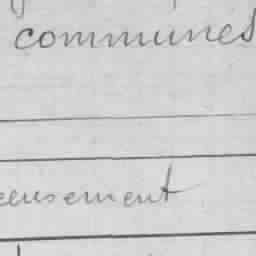 communes
censement